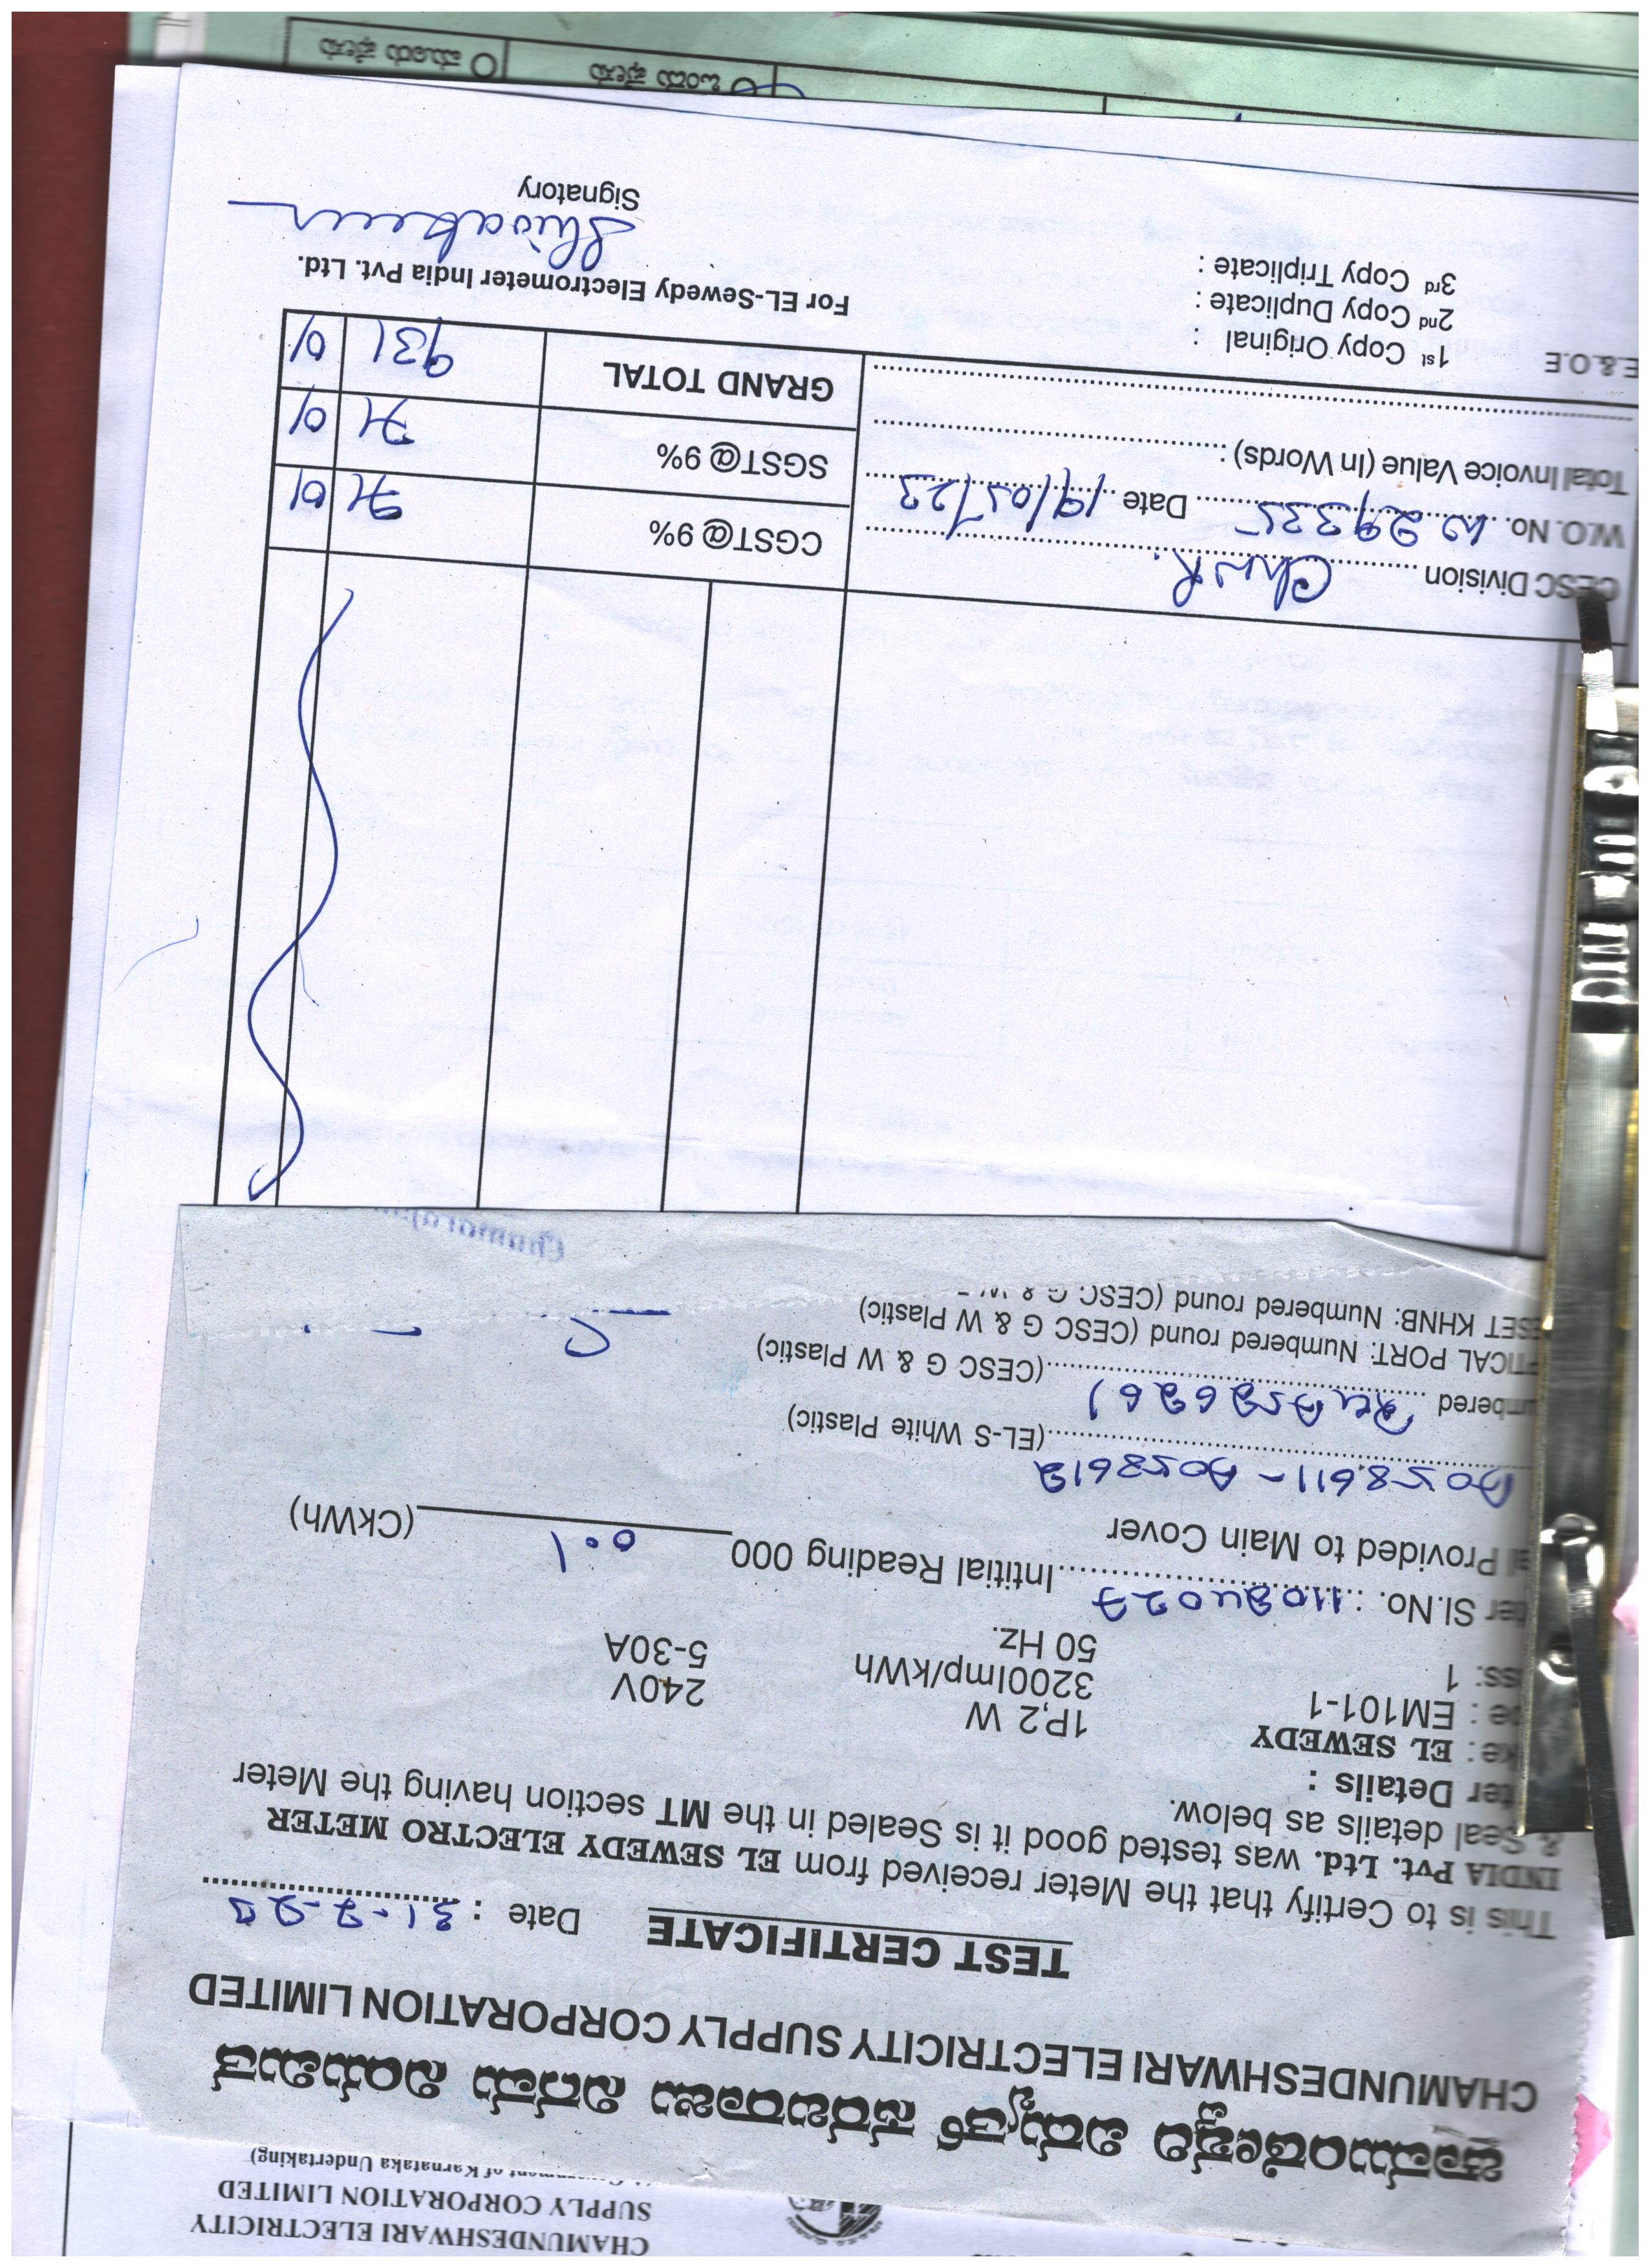 CHAMUNDESHWARI ELECTRICITY
SUPPLY CORPORATION LIMITED
of Karnataka Undertaking)
ಚಾಮುಂಡೇಶ್ವರಿ ವಿದ್ಯುತ್ ಸರಬರಾಜು ನಿಗಮ ನಿಯಮಿತ
CHAMUNDESHWARI ELECTRICITY SUPPLY CORPORATION LIMITED
TEST CERTIFICATE Date : 31-7-23
This is to Certify that the Meter received from EL SEWEDY ELECTRO METER
INDIA Pvt. Ltd. was tested good it is Sealed in the MT section having the Meter
& Seal details as below.
ter Details :
ke : EL SEWEDY 1P,2 W 240V
pe : EM101-1 3200Imp/kWh 5-30A
ss: 1 50 Hz.
ter Sl.No. : 11024027 Intitial Reading 000 0.1 (CkWh)
al Provided to Main Cover
A058611 - A058612 (EL-S White Plastic)
mbered (CESC G & W Plastic)
PTICAL PORT: Numbered round (CESC G & W Plastic)
ESET KHNB: Numbered round (CESC G & W
CESC Division ChnR. CGST@ 9% 71 01
W.O. No. 29335 Date 19/05/23 SGST@ 9% 71 01
Total Invoice Value (In Words) : GRAND TOTAL 931 01
E.&.O.E 1st Copy Original :
2nd Copy Duplicate :
3rd Copy Triplicate :
For EL-Sewedy Electrometer India Pvt. Ltd.
Signatory
ಒಂದು ಫೇಸು ಮೂರು ಫೇಸು